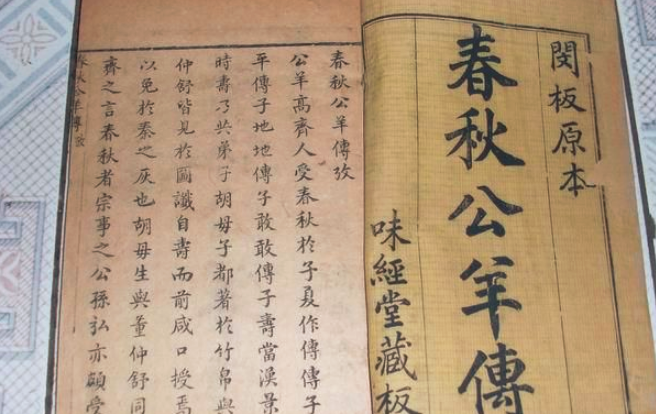 閔板原本
春秋公羊傳
味經堂藏板
春秋公羊傳攷
公羊高齊人受春秋於子夏作傳傳子
平傳子地地傳子敢敢傳子壽當漢景
時壽乃共弟子胡母子都著於竹帛與
仲舒皆見於圖讖自壽而前咸口授焉
以免於秦之灰也胡毋生與董仲舒同
齊之言春秋者宗事之公孫弘亦頗受
春秋公羊傳攷